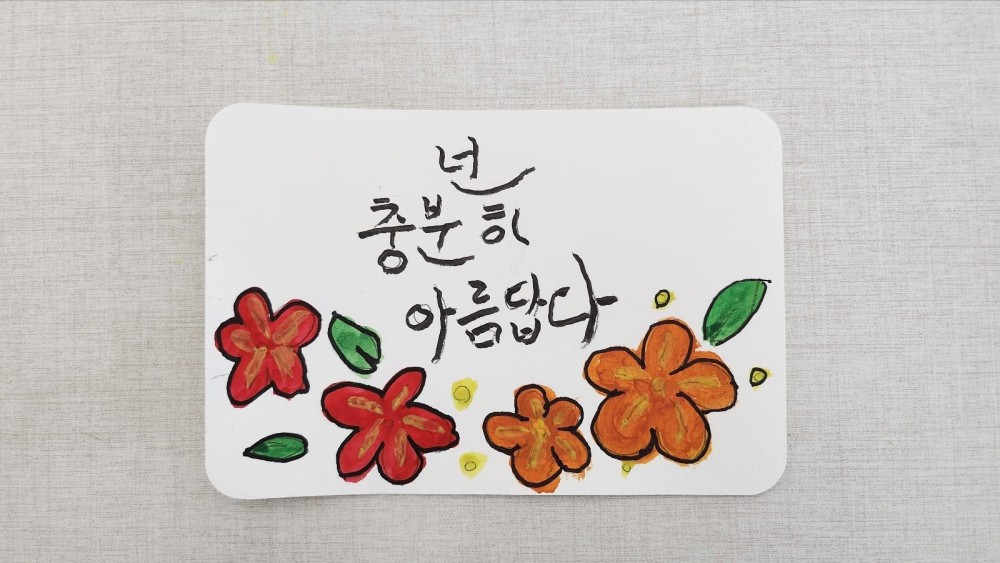 넌
충분히
아름답다